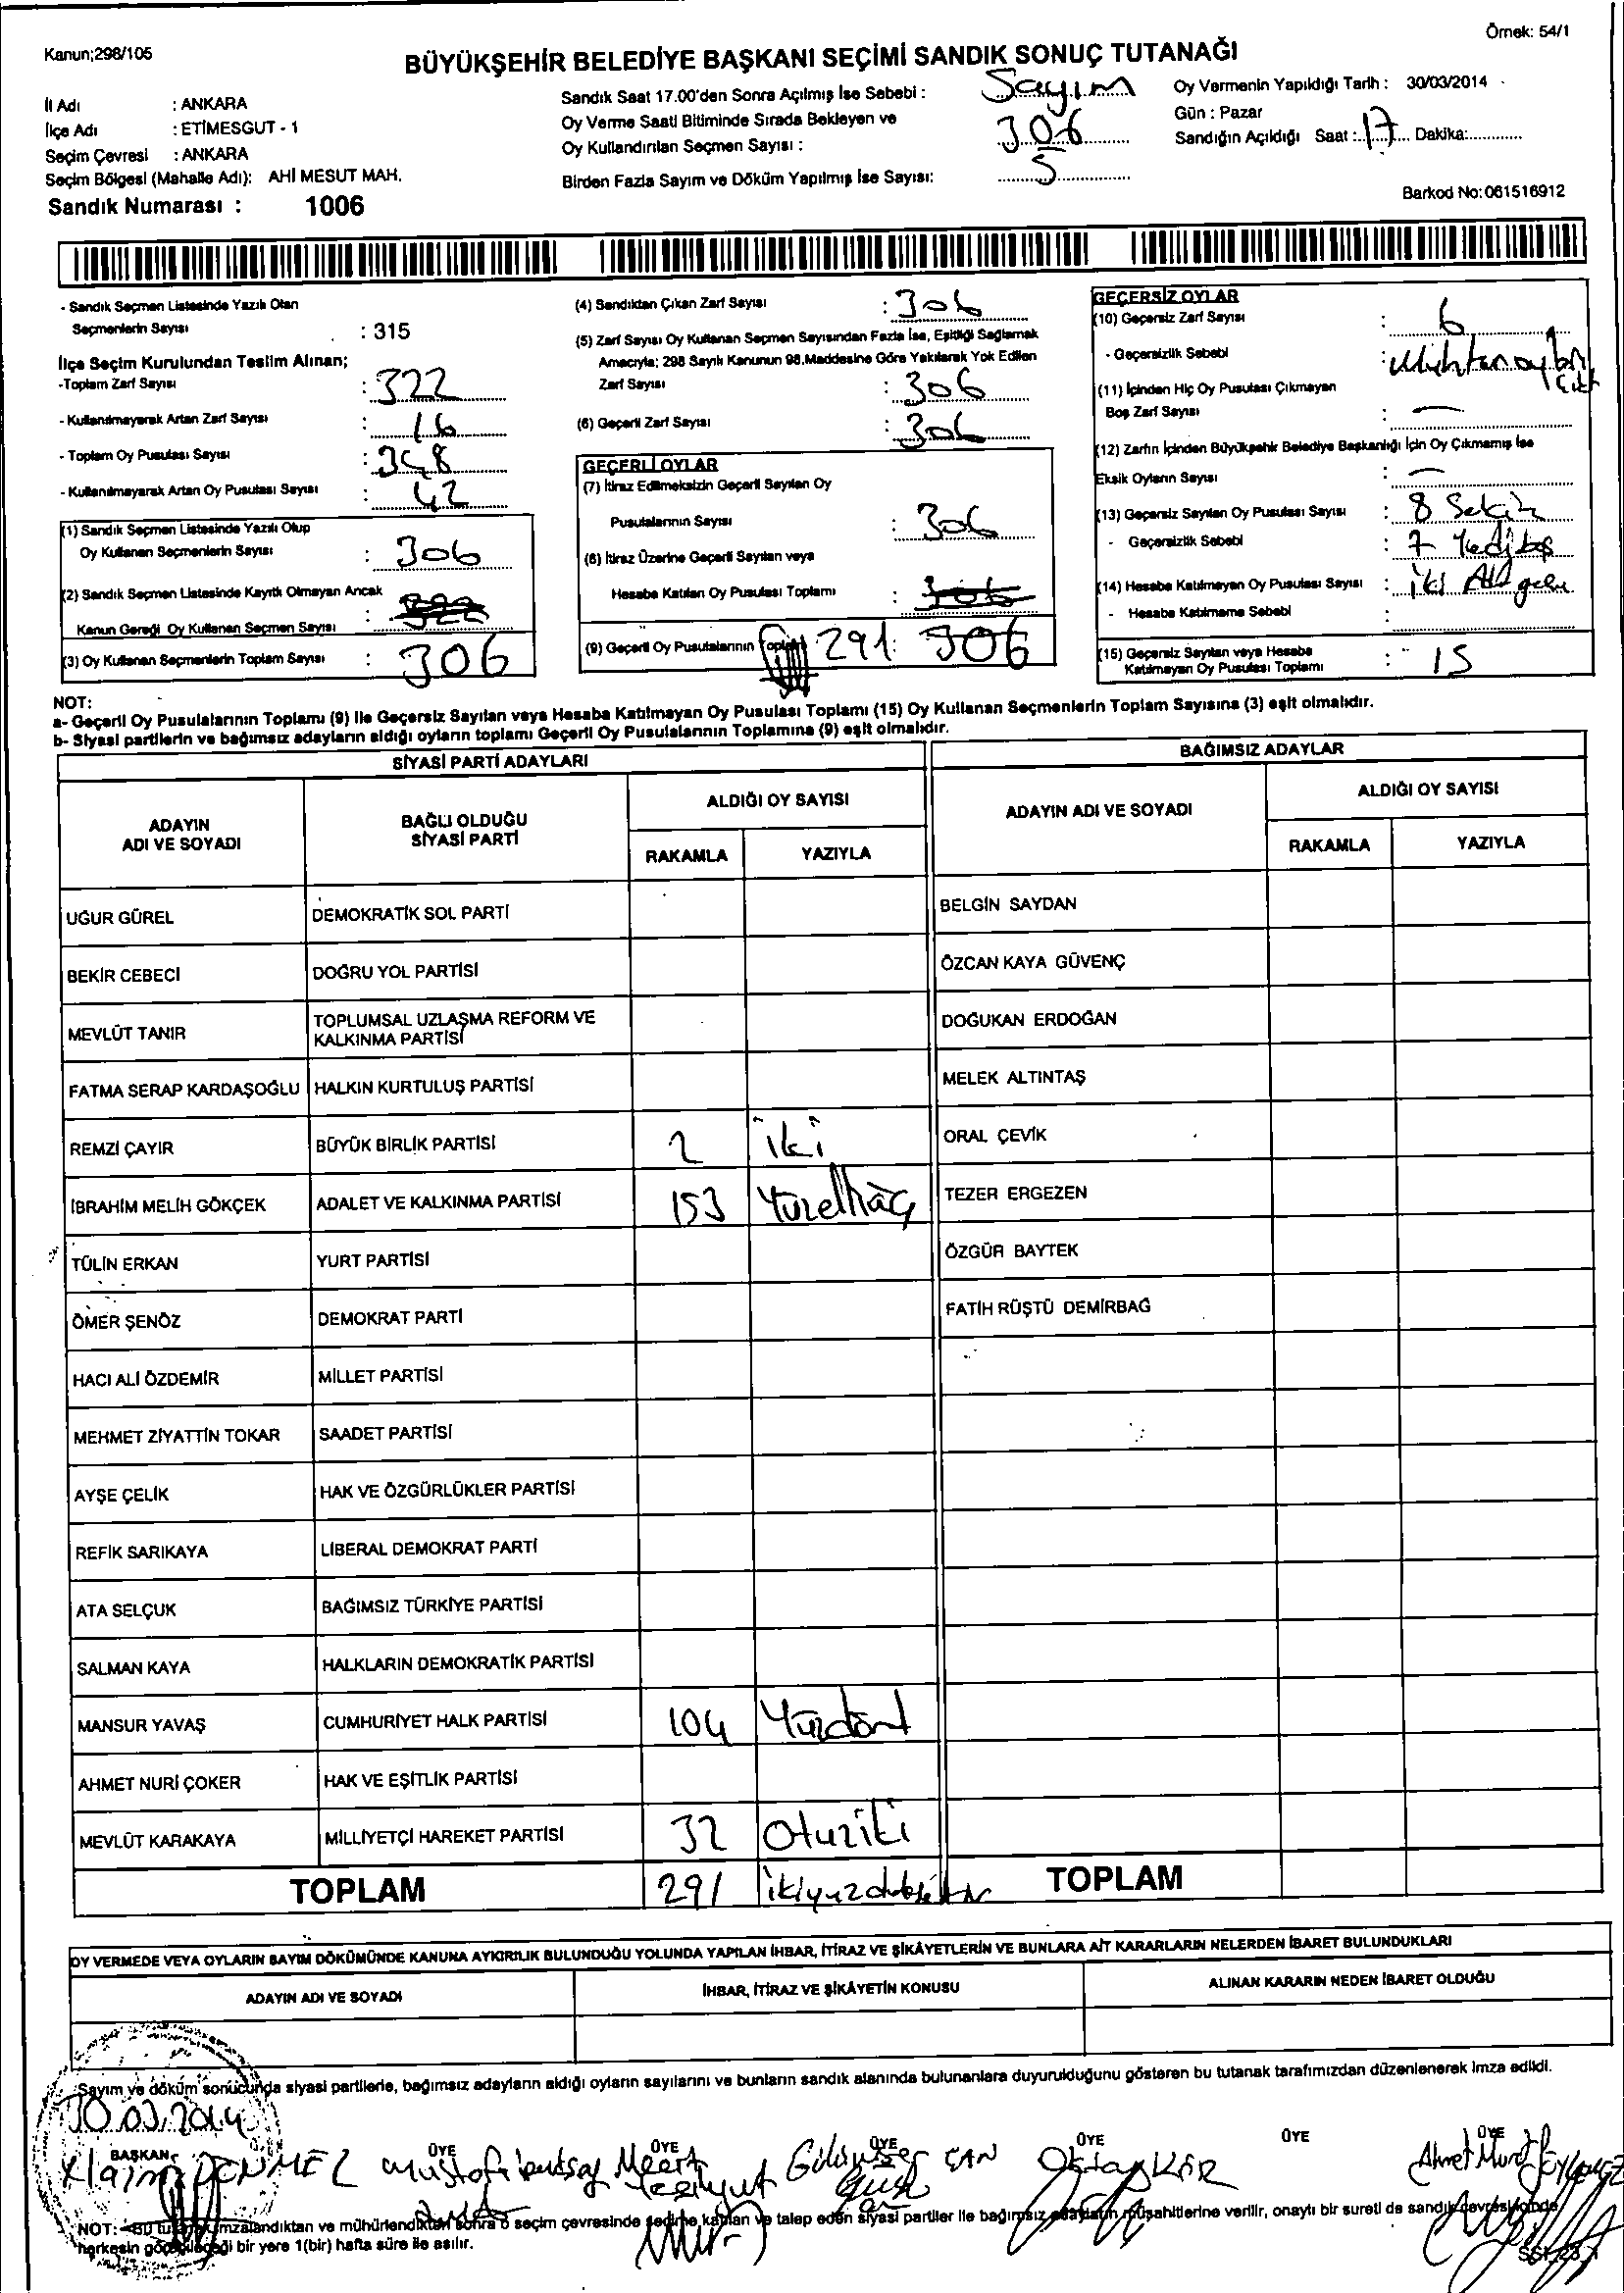 Kanun;298/105
Örnek: 54/1
BÜYÜKŞEHİR BELEDİYE BAŞKANI SEÇİMİ SANDIK SONUÇ TUTANAĞI
İl Adı : ANKARA
İlçe Adı : ETİMESGUT - 1
Seçim Çevresi : ANKARA
Seçim Bölgesi (Mahalle Adı): AHİ MESUT MAH.
Sandık Numarası : 1006
Sandık Saat 17.00'den Sonra Açılmış İse Sebebi : Sayım
Oy Verme Saati Bitiminde Sırada Bekleyen ve
Oy Kullandırılan Seçmen Sayısı : 306
Birden Fazla Sayım ve Döküm Yapılmış İse Sayısı: 5
Oy Vermenin Yapıldığı Tarih : 30/03/2014
Gün : Pazar
Sandığın Açıldığı Saat : 17 Dakika:
Barkod No:061516912
- Sandık Seçmen Listesinde Yazılı Olan
Seçmenlerin Sayısı : 315
İlçe Seçim Kurulundan Teslim Alınan;
-Toplam Zarf Sayısı : 322
- Kullanılmayarak Artan Zarf Sayısı : 16
- Toplam Oy Pusulası Sayısı : 348
- Kullanılmayarak Artan Oy Pusulası Sayısı : 42
(1) Sandık Seçmen Listesinde Yazılı Olup
Oy Kullanan Seçmenlerin Sayısı : 306
(2) Sandık Seçmen Listesinde Kayıtlı Olmayan Ancak
Kanun Gereği Oy Kullanan Seçmen Sayısı :
(3) Oy Kullanan Seçmenlerin Toplam Sayısı : 306
(4) Sandıktan Çıkan Zarf Sayısı : 306
(5) Zarf Sayısı Oy Kullanan Seçmen Sayısından Fazla İse, Eşitliği Sağlamak
Amacıyla; 298 Sayılı Kanunun 98.Maddesine Göre Yakılarak Yok Edilen
Zarf Sayısı : 306
(6) Geçerli Zarf Sayısı : 306
GEÇERLİ OYLAR
(7) İtiraz Edilmeksizin Geçerli Sayılan Oy
Pusulalarının Sayısı : 306
(8) İtiraz Üzerine Geçerli Sayılan veya
Hesaba Katılan Oy Pusulası Toplamı : 306
(9) Geçerli Oy Pusulalarının Toplamı 291 : 306
GEÇERSİZ OYLAR
(10) Geçersiz Zarf Sayısı : 6
- Geçersizlik Sebebi :
(11) İçinden Hiç Oy Pusulası Çıkmayan
Boş Zarf Sayısı : —
(12) Zarfın İçinden Büyükşehir Belediye Başkanlığı İçin Oy Çıkmamış İse
Eksik Oyların Sayısı : —
(13) Geçersiz Sayılan Oy Pusulası Sayısı : 8 Sekiz
- Geçersizlik Sebebi : 7 Yedi boş
(14) Hesaba Katılmayan Oy Pusulası Sayısı : iki
- Hesaba Katılmama Sebebi :
(15) Geçersiz Sayılan veya Hesaba
Katılmayan Oy Pusulası Toplamı : 15
NOT:
a- Geçerli Oy Pusulalarının Toplamı (9) İle Geçersiz Sayılan veya Hesaba Katılmayan Oy Pusulası Toplamı (15) Oy Kullanan Seçmenlerin Toplam Sayısına (3) eşit olmalıdır.
b- Siyasi partilerin ve bağımsız adayların aldığı oyların toplamı Geçerli Oy Pusulalarının Toplamına (9) eşit olmalıdır.
SİYASİ PARTİ ADAYLARI
BAĞIMSIZ ADAYLAR
ADAYIN
ADI VE SOYADI
BAĞLI OLDUĞU
SİYASİ PARTİ
ALDIĞI OY SAYISI
RAKAMLA YAZIYLA
ADAYIN ADI VE SOYADI
ALDIĞI OY SAYISI
RAKAMLA YAZIYLA
UĞUR GÜREL DEMOKRATİK SOL PARTİ BELGİN SAYDAN
BEKİR CEBECİ DOĞRU YOL PARTİSİ ÖZCAN KAYA GÜVENÇ
MEVLÜT TANIR TOPLUMSAL UZLAŞMA REFORM VE
KALKINMA PARTİSİ DOĞUKAN ERDOĞAN
FATMA SERAP KARDAŞOĞLU HALKIN KURTULUŞ PARTİSİ MELEK ALTINTAŞ
REMZİ ÇAYIR BÜYÜK BİRLİK PARTİSİ 2 iki ORAL ÇEVİK
İBRAHİM MELİH GÖKÇEK ADALET VE KALKINMA PARTİSİ 153 Yüzelliüç TEZER ERGEZEN
TÜLİN ERKAN YURT PARTİSİ ÖZGÜR BAYTEK
ÖMER ŞENÖZ DEMOKRAT PARTİ FATİH RÜŞTÜ DEMİRBAĞ
HACI ALİ ÖZDEMİR MİLLET PARTİSİ
MEHMET ZİYATTİN TOKAR SAADET PARTİSİ
AYŞE ÇELİK HAK VE ÖZGÜRLÜKLER PARTİSİ
REFİK SARIKAYA LİBERAL DEMOKRAT PARTİ
ATA SELÇUK BAĞIMSIZ TÜRKİYE PARTİSİ
SALMAN KAYA HALKLARIN DEMOKRATİK PARTİSİ
MANSUR YAVAŞ CUMHURİYET HALK PARTİSİ 104 Yüzdört
AHMET NURİ ÇOKER HAK VE EŞİTLİK PARTİSİ
MEVLÜT KARAKAYA MİLLİYETÇİ HAREKET PARTİSİ 32 Otuziki
TOPLAM 291 TOPLAM
OY VERMEDE VEYA OYLARIN SAYIM DÖKÜMÜNDE KANUNA AYKIRILIK BULUNDUĞU YOLUNDA YAPILAN İHBAR, İTİRAZ VE ŞİKÂYETLERİN VE BUNLARA AİT KARARLARIN NELERDEN İBARET BULUNDUKLARI
ADAYIN ADI VE SOYADI İHBAR, İTİRAZ VE ŞİKÂYETİN KONUSU ALINAN KARARIN NEDEN İBARET OLDUĞU
Sayım ve döküm sonucunda siyasi partilerle, bağımsız adayların aldığı oyların sayılarını ve bunların sandık alanında bulunanlara duyurulduğunu gösteren bu tutanak tarafımızdan düzenlenerek imza edildi.
30.03.2014
BAŞKAN ÜYE ÜYE ÜYE ÜYE ÜYE ÜYE
NOT: Bu tutanak imzalandıktan ve mühürlendikten sonra o seçim çevresinde seçime katılan ve talep eden siyasi partiler ile bağımsız adayların müşahitlerine verilir, onaylı bir sureti de sandık çevresi içinde
herkesin görebileceği bir yere 1(bir) hafta süre ile asılır.